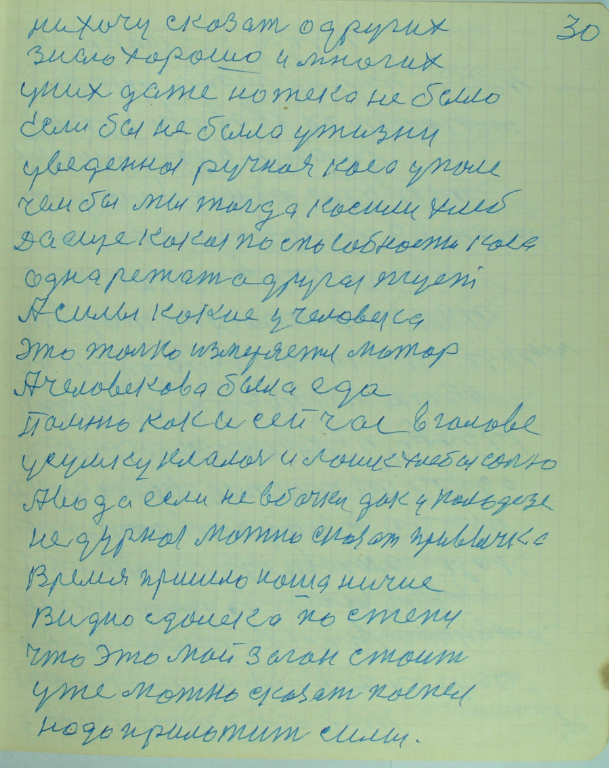 нихочу сказат одругих 30
зисло хорошо и многих
уних даже ножека не было
Если бы не была ужизни
уведенноя ручноя коса уполе
чем бы мы тогда косили хлеб
Да еще кокоя поспособности коса
одна режат а другая жует
А силы кокие у человека
это толко измеряетя мотор
А человекова была еда
Помню как и сейчас вголове
усумку клалоя и ломик хлеба исолю
А вода если невбочки дак у колодезе
не дурноя можно сказат привычка
Время пришло наша ничие
Видно сдалека по степу
что это мой загон стоит
уже можно сказат поспел
надо приложит силы.